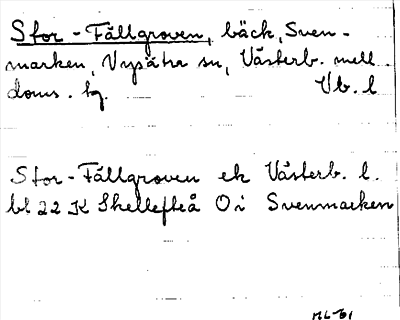 Stor-Fällgroven, bäck, Sven-
marken, Nysätra sn, Västerb. mell.
doms. hg. Vb. l
Stor-Fällgroven ek Västerb. l.
bl 22 K Skellefteå O i Svenmarken